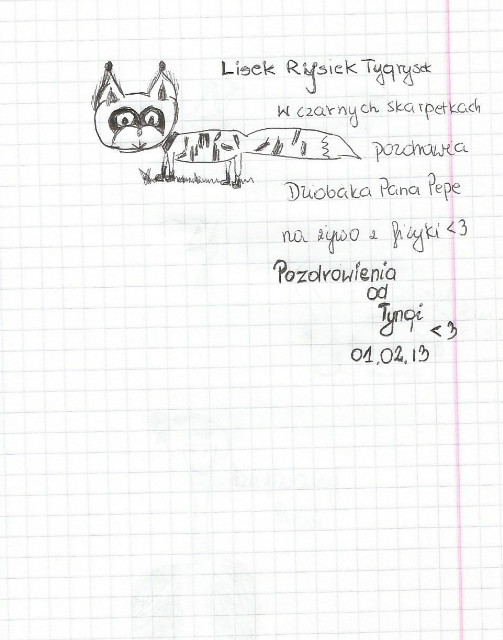 Lisek Rysiek Tygrysek
w czarnych skarpetkach
pozdrawia
Dziobaka Pana Pepe
na żywo z fizyki <3
Pozdrowienia
od
Tynqi
<3
01.02.13